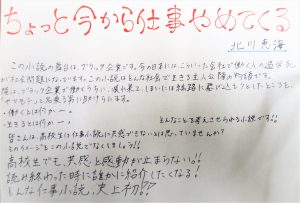 ちょっと今から仕事やめてくる
北川恵海
この小説の舞台は、ブラック企業です。今の日本には、こういった会社で働く人の過労死
が社会問題になっています。この小説はそんな社会で生きる主人公 隆の物語です。
隆は、ブラック企業で働くうちに、疲れ果て、しまいには線路に飛び込もうとしたところを、
「ヤマモト」と名乗る男に助けられます。
・働くとは何か―。
・生きるとは何か―。
どんなことを考えさせられる小説です!!
皆さんは、高校生に仕事小説に共感できないとは思っていませんか?
そのイメージをこの小説でなくしましょう!!
高校生でも、共感と感動が止まらない!!
読み終わった時に誰かに紹介したくなる!
そんな仕事小説、史上初!?